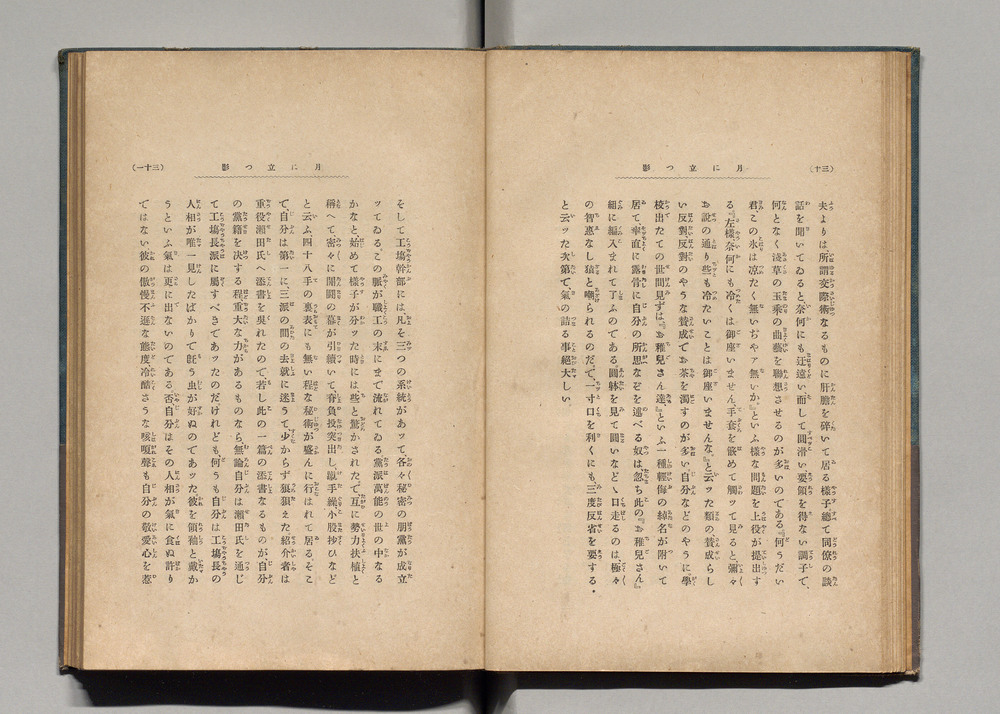 (三十)
月に立つ影
夫よりは所謂交際術なるものに肝膽を碎いて居る樣子、總て同僚の談
話を聞いてゐると、奈何にも迂遠い而して圓滑い要領を得ない調子で、
何となく淺草の玉乘の曲藝を聯想させるのが多いのである。『何うだい
君、この氷は凉たく無いぢやア無いか。』といふ樣な問題を上役が提出す
る。『左樣奈何にも冷くは御座いません、手套を嵌めて觸ッて見ると彌々
お說の通り些も冷たいことは御座いませんな。』と云ッた類の賛成らし
い反對、反對のやうな賛成でお茶を濁すのが多い、自分などのやうに學
校出たての世間見ずは、『お稚兒さん達。』といふ一種輕侮の綽名が附いて
居て率直に露骨に自分の所思なぞを述べる奴は、忽ち此の『お稚兒さん』
組に編入まれて了ふのである、圓躰を見て圓いなど口走るのは、極々
の智惠なし猿と嘲られるのだ、で、一寸口を利くにも、三度反省を要する。
と云ッた次第で、氣の詰る事絕大し。
(三十一)
月に立つ影
そして工塲幹部には凡そ三つの系統があッて、各々秘密の朋黨が成立
ッてゐる、この脈が職工の末にまで流れてゐる、黨派萬能の世の中なる
かなと、始めて樣子が分ッた時には些と驚かされた、で互に勢力扶植と
稱へて密々に開鬪の幕が引續いて脊負投突出し、蹴手繰小股抄ひなど
と云ふ、四十八手の裏表にも無い程な秘術が盛んに行はれて居る、そこ
で、自分は第一に、三派の間の去就に迷うて少からず狼狽えた紹介者は
重役瀨田氏へ添書を吳れたので若し此の一篇の添書なるものが自分
の黨籍を決する程、重大な力があるものなら、無論自分は瀨田氏を通じ
て工塲長派に屬すべきであッたのだけれども、何うも自分は工塲長の
人相が唯一見したばかりで既う虫が好ぬのであッた、彼を領袖と戴か
うといふ氣は更に出ないのである、否自分はその人相が氣に食ぬ許り
ではない、彼の傲慢不遜な態度、冷酷さうな咳嗄聲も自分の敬愛心を惹